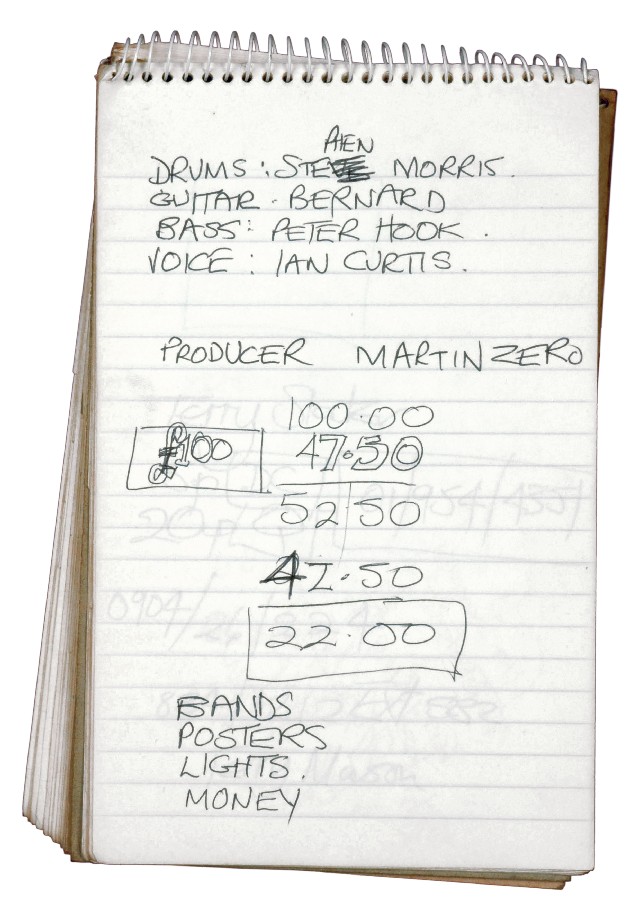 PHEN
DRUMS : STEVE MORRIS.
GUITAR - BERNARD
BASS: PETER HOOK.
VOICE : IAN CURTIS.
PRODUCER MARTIN ZERO
100.00
£100 47.50
52 50
47.50
22.00
BANDS
POSTERS
LIGHTS.
MONEY